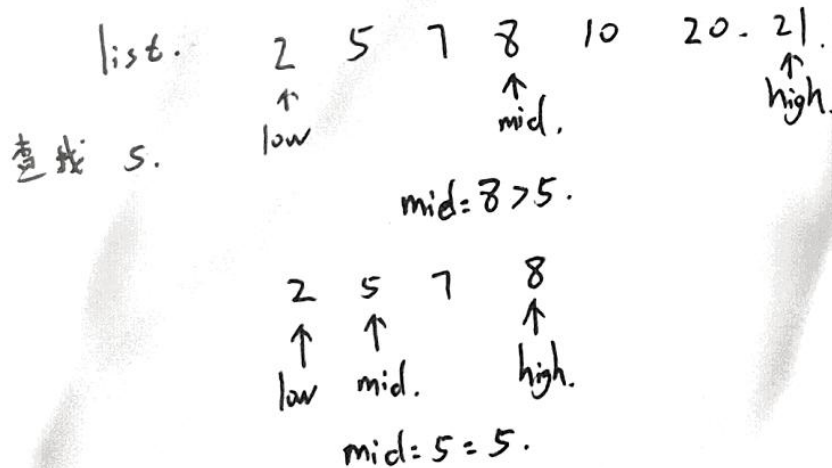 list. 2 5 7 8 10 20. 21.
↑ ↑ ↑
low mid. high.
查找 5.
mid=8>5.
2 5 7 8
↑ ↑ ↑
low mid. high.
mid=5=5.